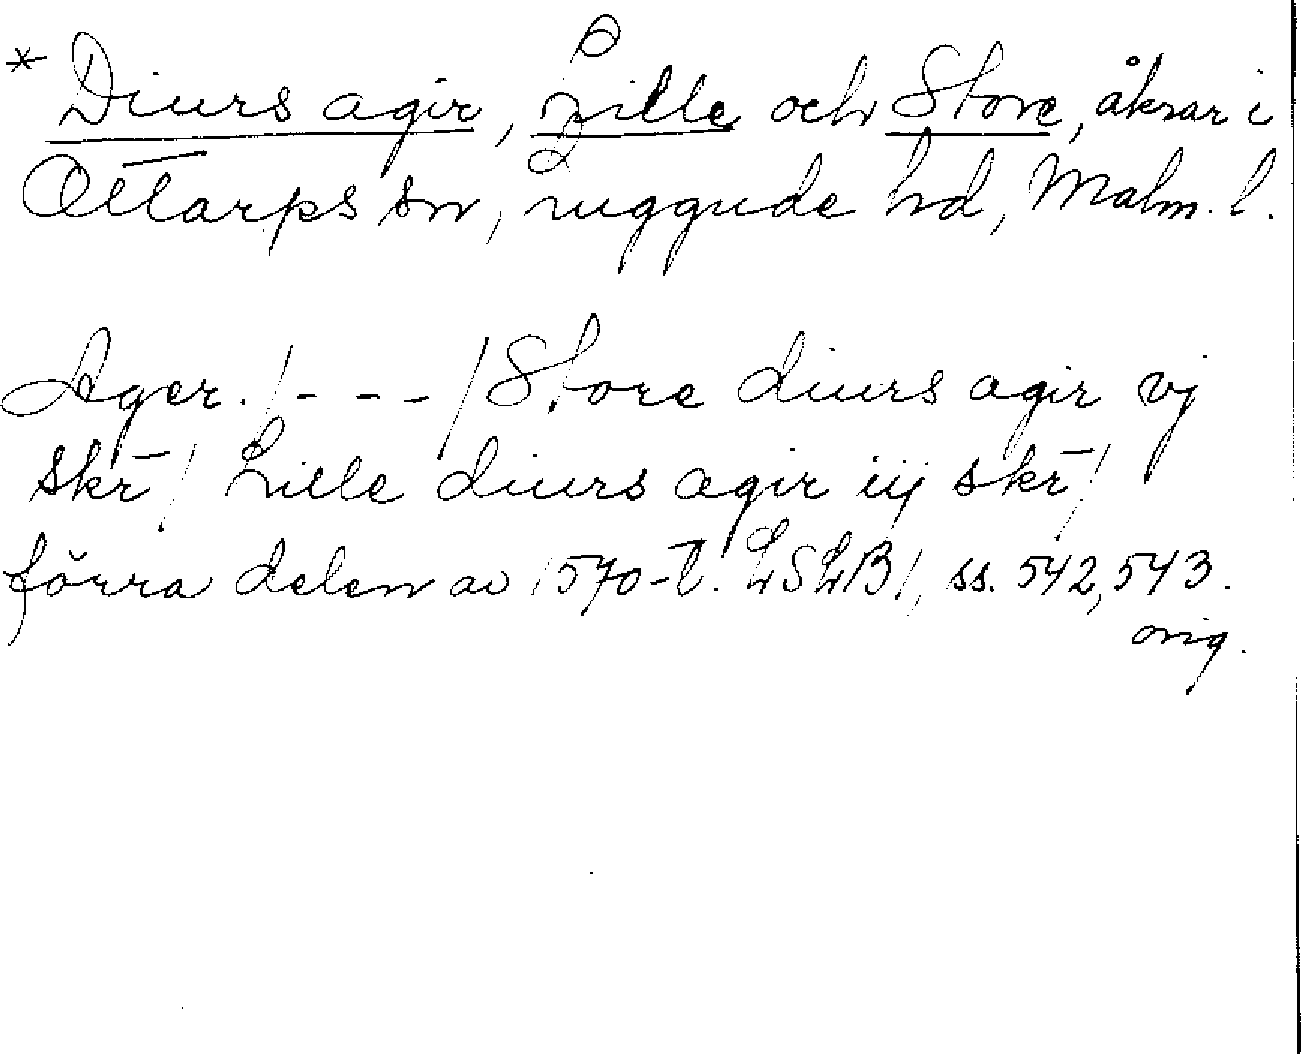 * Diurs agir, Lille och Store, åkrar i
Ottarps sn, Luggude hd, Malm. l.
Ager. / - - - / Store diurs agir vj
skr̄ / Lille diurs agir iij skr̄ /
förra delen av 1570-t. LSLB /, ss. 542, 543.
orig.